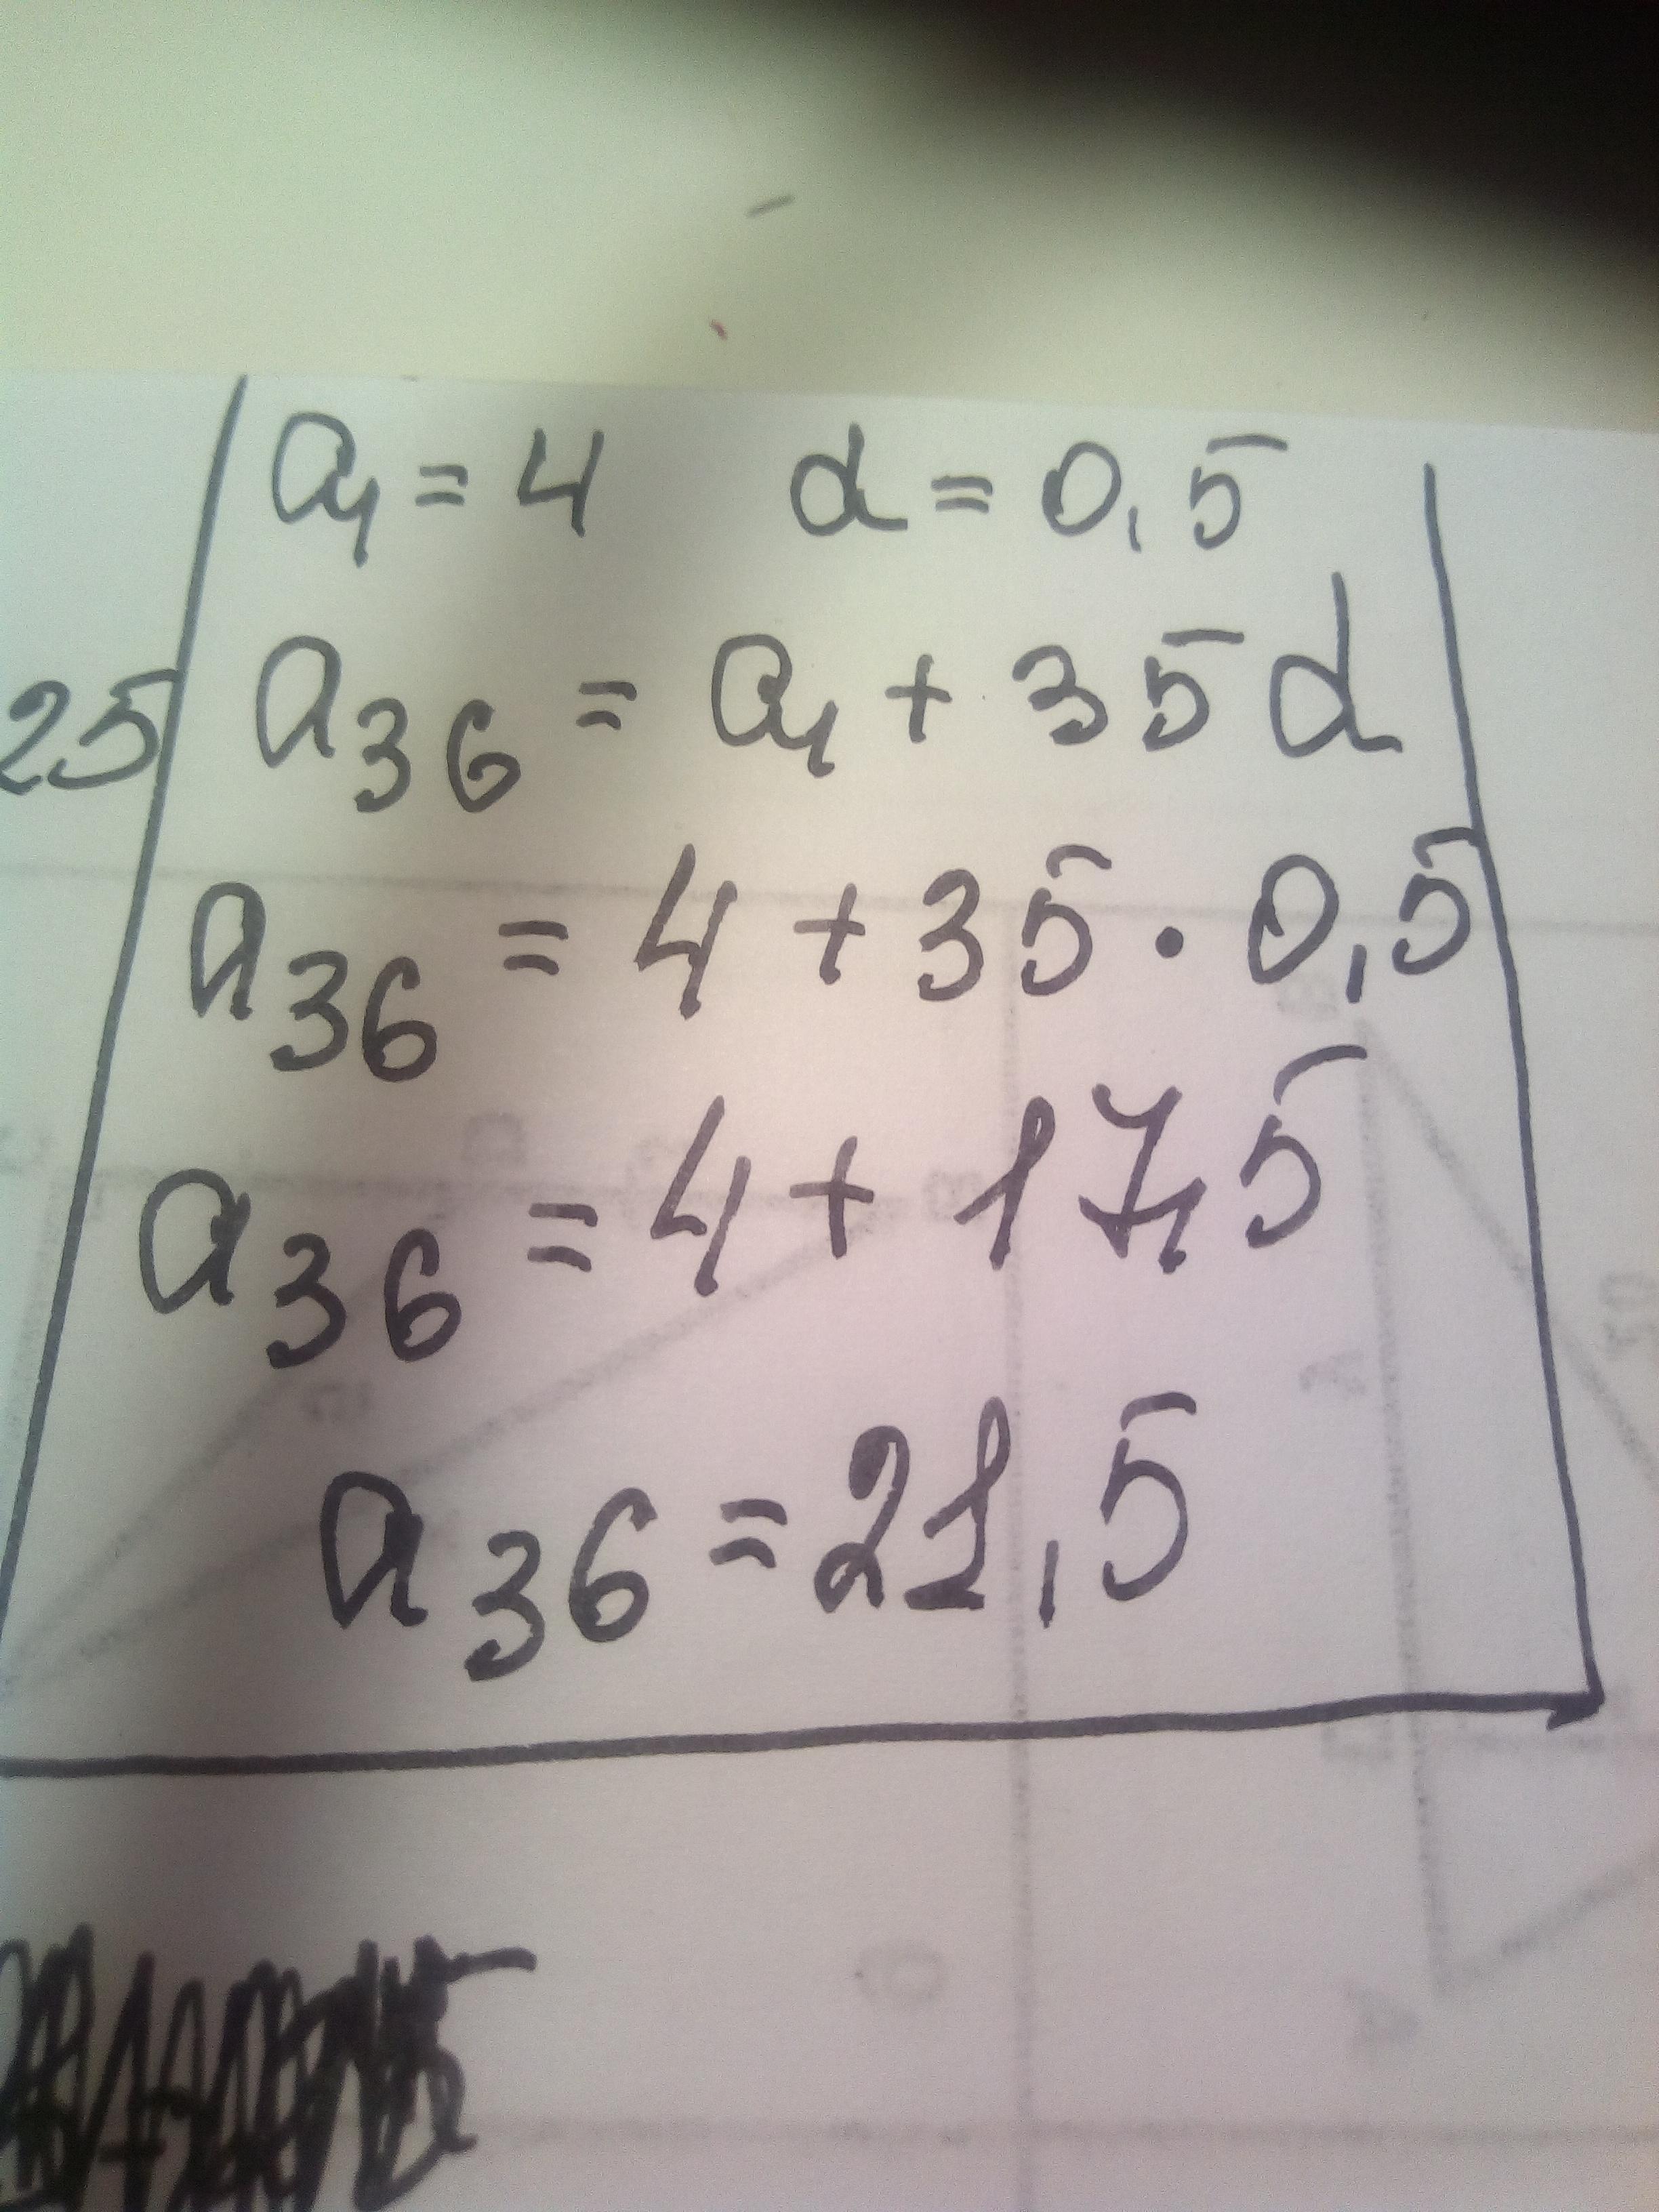 a₁ = 4 d = 0,5
25 a₃₆ = a₁ + 35d
a₃₆ = 4 + 35 · 0,5
a₃₆ = 4 + 17,5
a₃₆ = 21,5